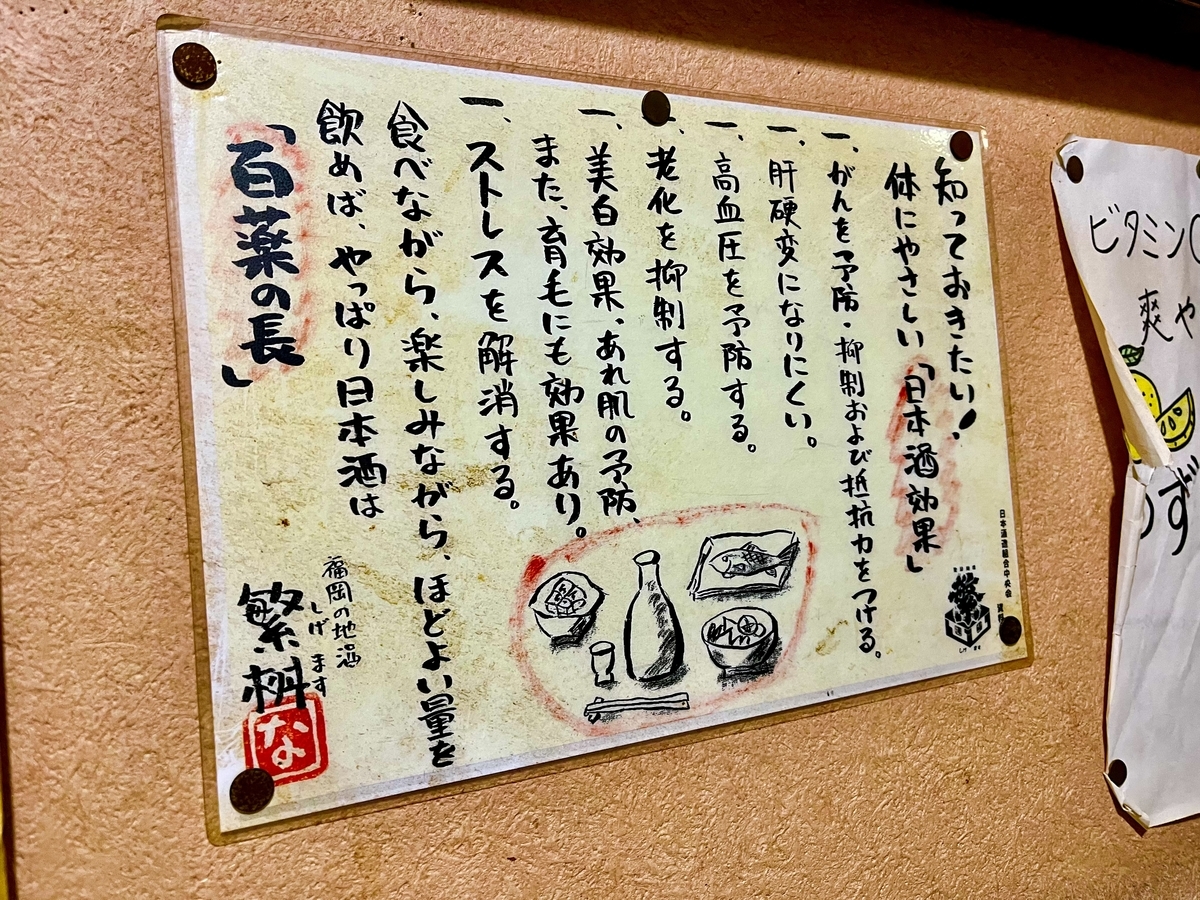 知っておきたい!
体にやさしい「日本酒効果」
一、がんを予防・抑制および抵抗力をつける。
一、肝硬変になりにくい。
一、高血圧を予防する。
一、老化を抑制する。
一、美白効果、あれ肌の予防、
また、育毛にも効果あり。
一、ストレスを解消する。
食べながら、楽しみながら、ほどよい量を
飲めば、やっぱり日本酒は
「百薬の長」
福岡の地酒
しげ ます
繁桝
な
日本酒造組合中央会
しげ ます
ビタミン
爽や